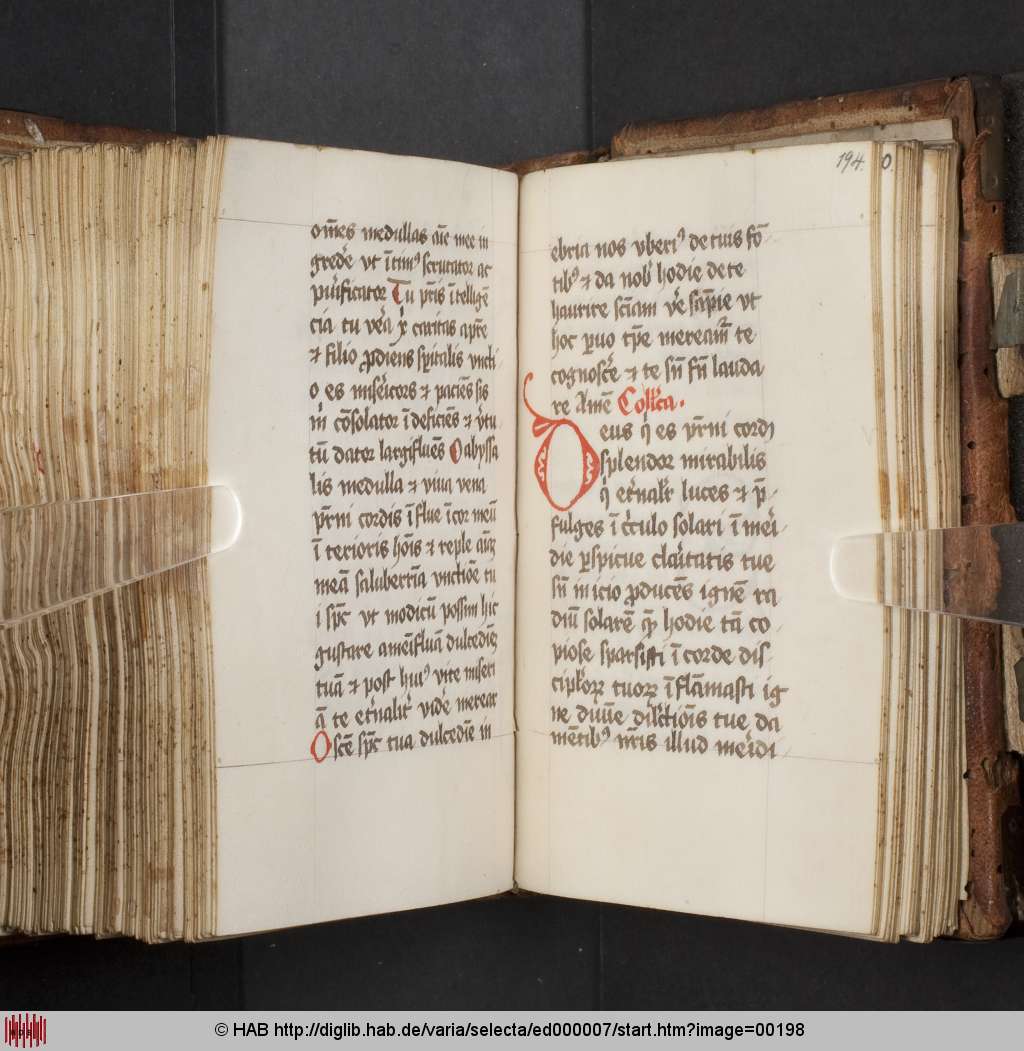 om̄es medullas aīe mee in
grede͛ vt ītimꝰ scrutator ac
purificator Tu pr̄is ītellige͞
cia tu vera xp̄i caritas apr̄e
⁊ filio ꝓdiens spiritalis vncti
o es miser̄icors ⁊ pacie͞s sis
m͛ co͞solator ī deficie͞s ⁊ v͛tu
tu͞ dator largiflue͞s O abyssa
lis medulla ⁊ viua vena
pr̄ni cordis īflue ī cor meu͞
ī terioris ho͞is ⁊ reple
mea͞ saluberria͞ vnctio͞e tu
i sp̄c vt modicu͞ possim hic
gustare amēiflua͞ dulcedie͞
tua͞ ⁊ post huiꝰ vite miseri
a͞ te et͛nalit͛ vide͛ merear
O sce͞ sp̄c tua dulcedie͞ in
194.
ebria nos vberiꝰ de tuis fo͞
tibꝰ ⁊ da nob͛ hodie de te
haurire sc̄iam ve͛ sap̄ie vt
hoc paruo tp̄e meream͛ te
cognosce͛ ⁊ te sn̄ fn̄ lauda
re Ame͞ Coll͛ca.
Deus q̇ es pr̄ni cordi
splendor mirabilis
q̇ et͛nalit͛ luces ⁊ p̄
fulges ī circulo solari ī meri
die ꝑspicue claritatis tue
sn̄ inicio ꝓduce͞s igne͞ ra
diu͞ solare͞ que͞ hodie ta͞ co
piose sparsisti ī corde dis
cipl͛oꝝ tuoꝝ īfla͞masti ig
ne diuīe dil͛ctio͞is tue da
me͞tibꝰ nr̄is illud meridi
© HAB http://diglib.hab.de/varia/selecta/ed000007/start.htm?image=00198